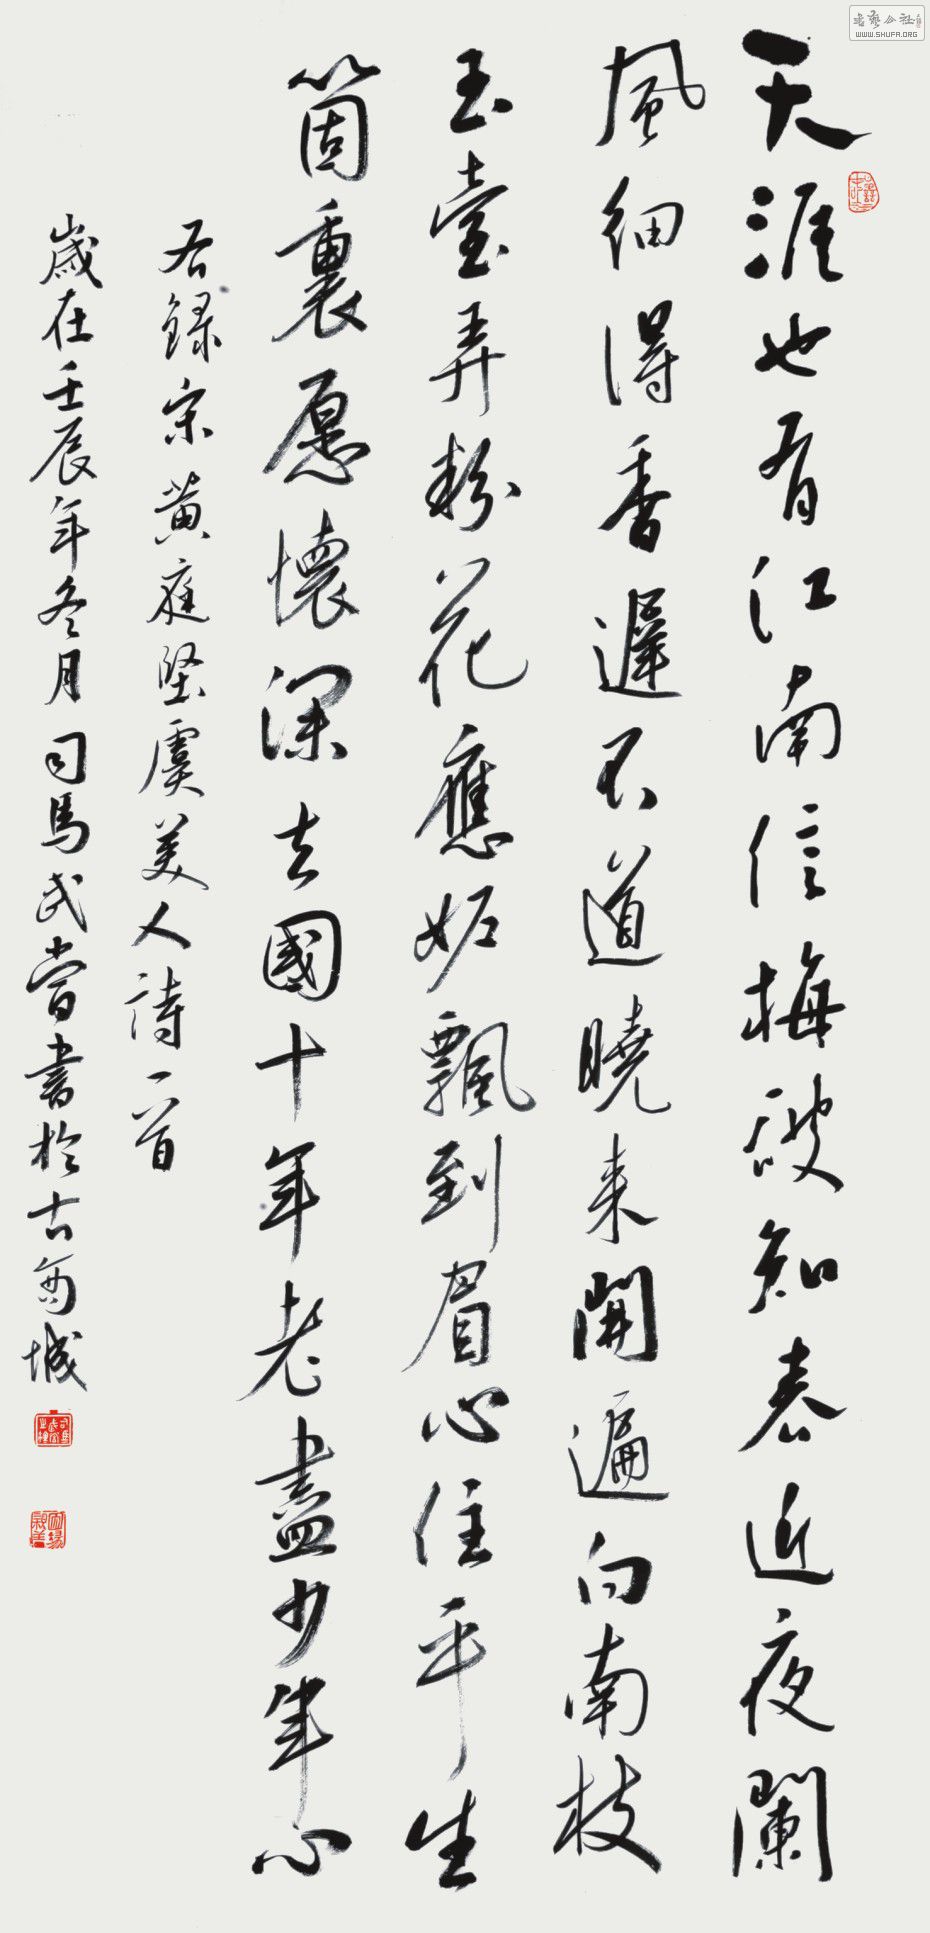 天涯也有江南信梅破知春近夜闌
風細得香遲不道曉来開遍向南枝
玉臺弄粉花應妒飄到眉心住平生
箇裏愿懷深去國十年老盡少年心
右録宋黄庭堅虞美人詩一首
歲在壬辰年冬月司馬武當書於古城
書藝公社
WWW.SHUFA.ORG